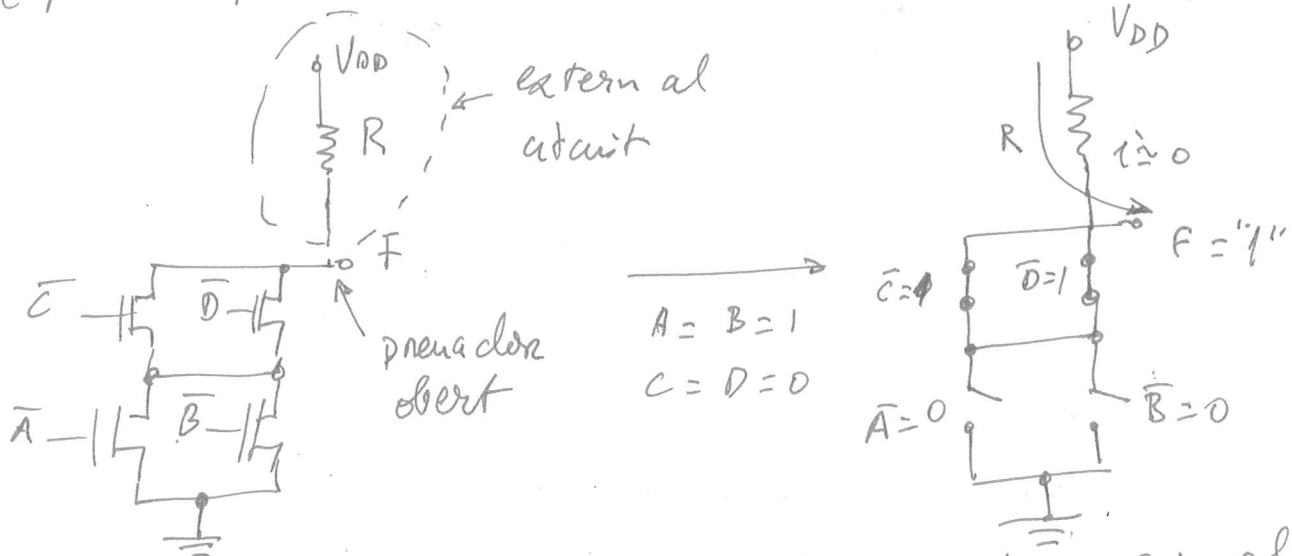 VDD
R
external
circuit
F
C̅
D̅
drenador
obert
A̅
B̅
A = B = 1
C = D = 0
VDD
R
i ≃ 0
F = "1"
C̅=1
D̅=1
A̅=0
B̅=0